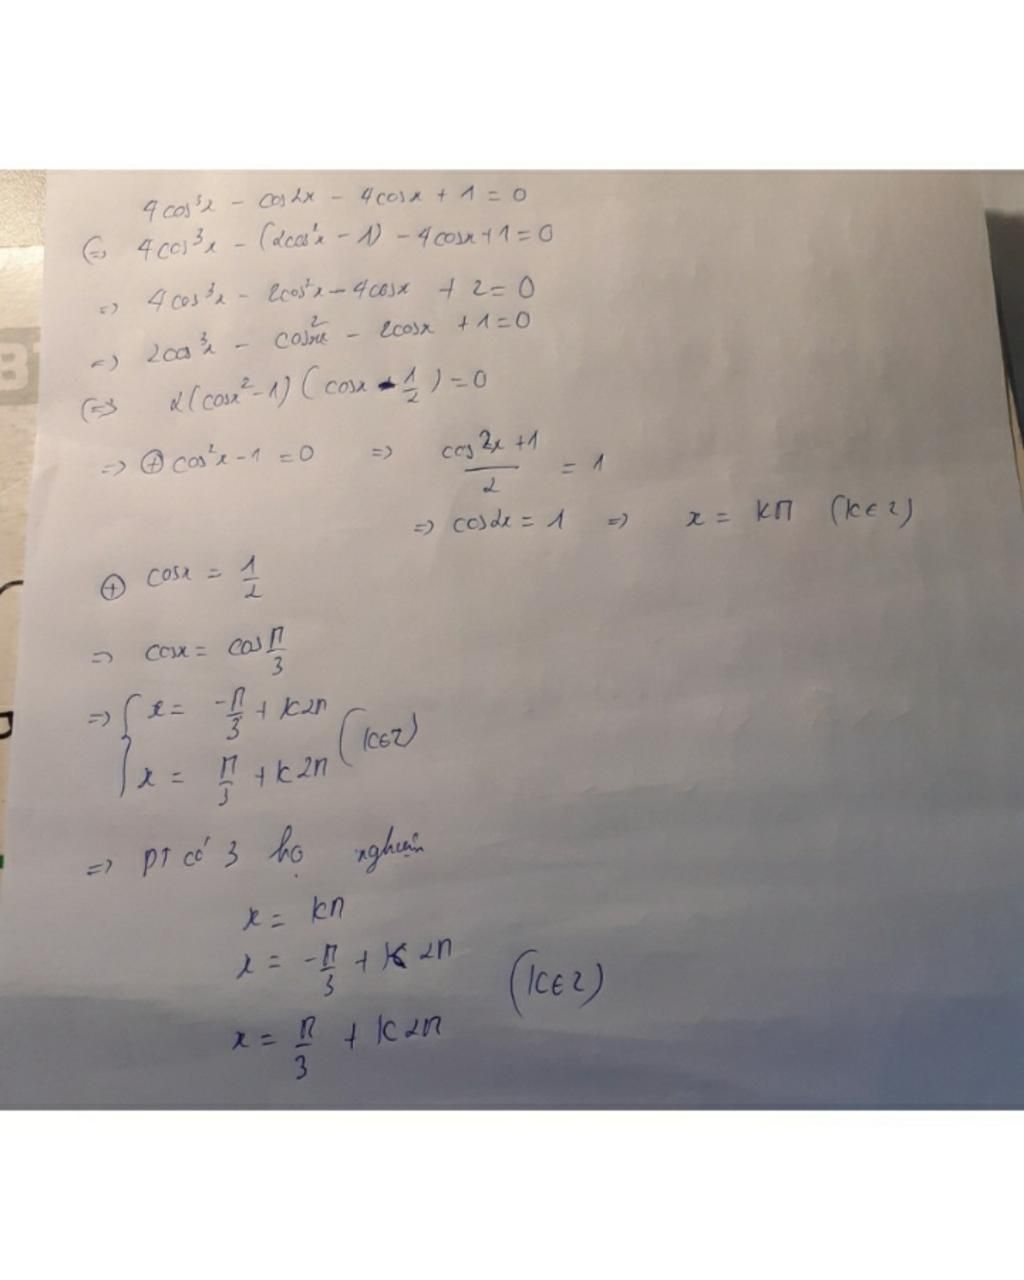 4cos³x - cos2x - 4cosx + 1 = 0
(=> 4cos³x - (2cos²x - 1) - 4cosx + 1 = 0
=> 4cos³x - 2cos²x - 4cosx + 2 = 0
=> 2cos³x - cos²x - 2cosx + 1 = 0
(=> 2(cosx² - 1)(cosx - 1/2) = 0
=> ⊕ cos²x - 1 = 0 => (cos2x + 1)/2 = 1
=> cos2x = 1 => x = kπ (k ∈ Z)
⊕ cosx = 1/2
=> cosx = cos π/3
=> { x = -π/3 + k2π
x = π/3 + k2π (k∈Z)
=> PT có 3 họ nghiệm
x = kπ
x = -π/3 + k2π
(k∈Z)
x = π/3 + k2π